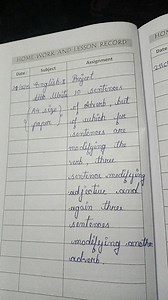 HOME WORK AND LESSON RECORD
HOM
Date Subject Assignment
Date
English Project
Write 10 sentences
(A4 size) of adverb, but
(paper) of which four
sentences are
modifying the
verb, three
sentence modifying
adjective and
again three
sentences
modifying another
adverb.